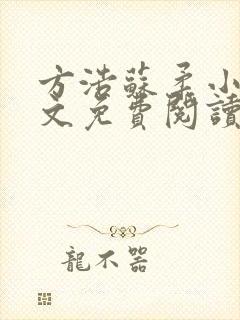 方浩蘇柔小
文免費閱讀
龍不器